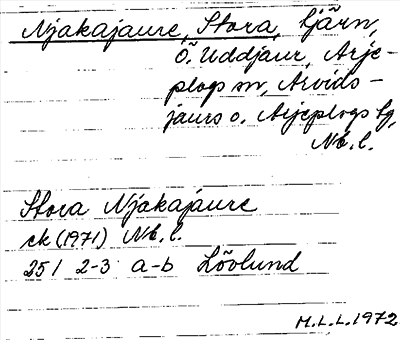 Njakajaure, Stora, tjärn,
ö. Uddjaur, Arje-
plogs sn, Arvids-
jaurs o. Arjeplogs tg,
Nb. l.
Stora Njakajaure
ek (1971) Nb. l.
25 I 2-3 a-b Lövlund
M.L.L. 1972